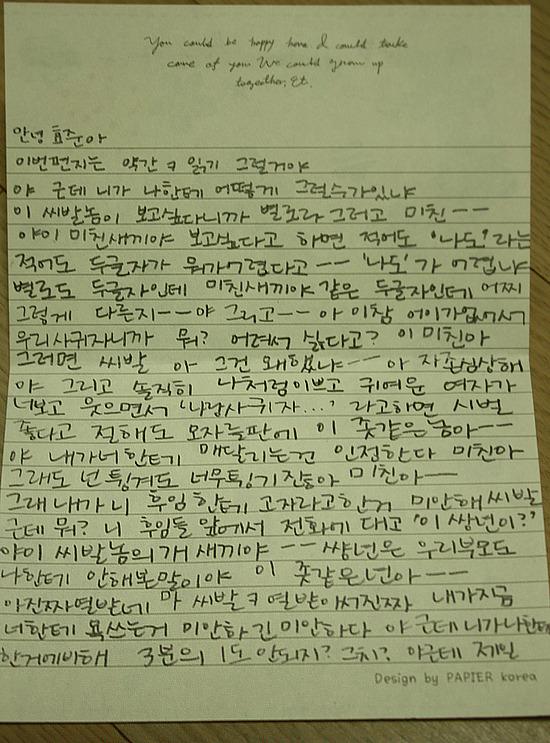 You could be happy here I could take
care of you We could grow up
together, Et.
안녕 효준아
이번편지는 약간 ㅋ 읽기 그럴거야
야 근데 니가 나한테 어떻게 그럴수가있냐
이 씨발놈이 보고싶다니까 별로라 그러고 미친--
야이 미친새끼야 보고싶다고 하면 적어도 '나도'라는
적어도 두글자가 뭐가어렵다고 -- '나도'가 어렵냐
별로도 두글자인데 미친새끼야 같은 두글자인데 어찌
그렇게 다른지--야 그리고-- 아 이참 어이가없어서
우리사귀자니까 뭐? 어려서 싫다고? 이 미친아
그러면 씨발 아 그건 왜했냐-- 아 자존심상해
야 그리고 솔직히 나처럼이쁘고 귀여운 여자가
너보고 웃으면서 '나랑사귀자...' 라고하면 시벌
좋다고 절해도 모자를판에 이 좆같은놈아--
야 내가너한테 매달리는건 인정한다 미친아
그래도 넌 튕겨도 너무튕기잖아 미친아--
그래 내가 니 후임한테 고자라고한거 미안해 씨발
근데 뭐? 니 후임들 앞에서 전화에 대고 '이 쌍년이?'
야이 씨발놈의개새끼야 -- 썅년은 우리부모도
나한테 안해본말이야 이 좆같은년아--
아진짜열받네 마 씨발ㅋ열받아서진짜 내가지금
너한테 욕쓰는거 미안하긴미안하다 야 근데니가나한테
한거에비해 3분의 1도 안되지? 그치? 야근데 제일
Design by PAPIER korea